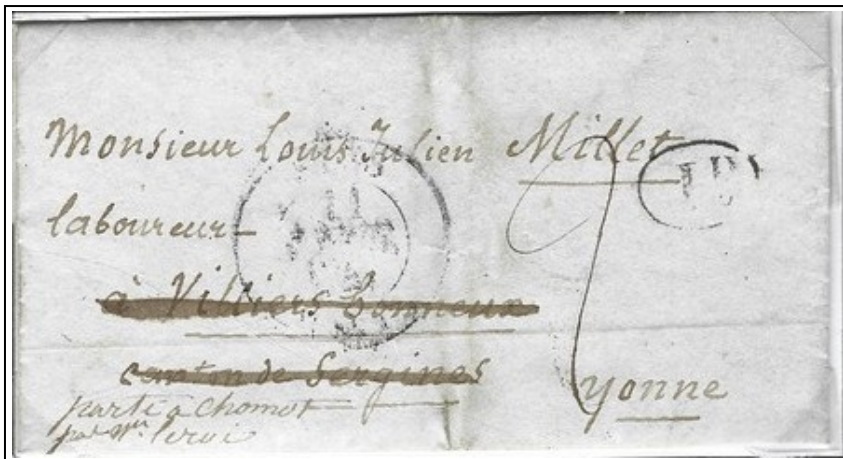 Monsieur Louis Julien Millet
laboureur
à Villiers bonneux
canton de Sergines
yonne
parti à Chomot
par Mr leroi
11